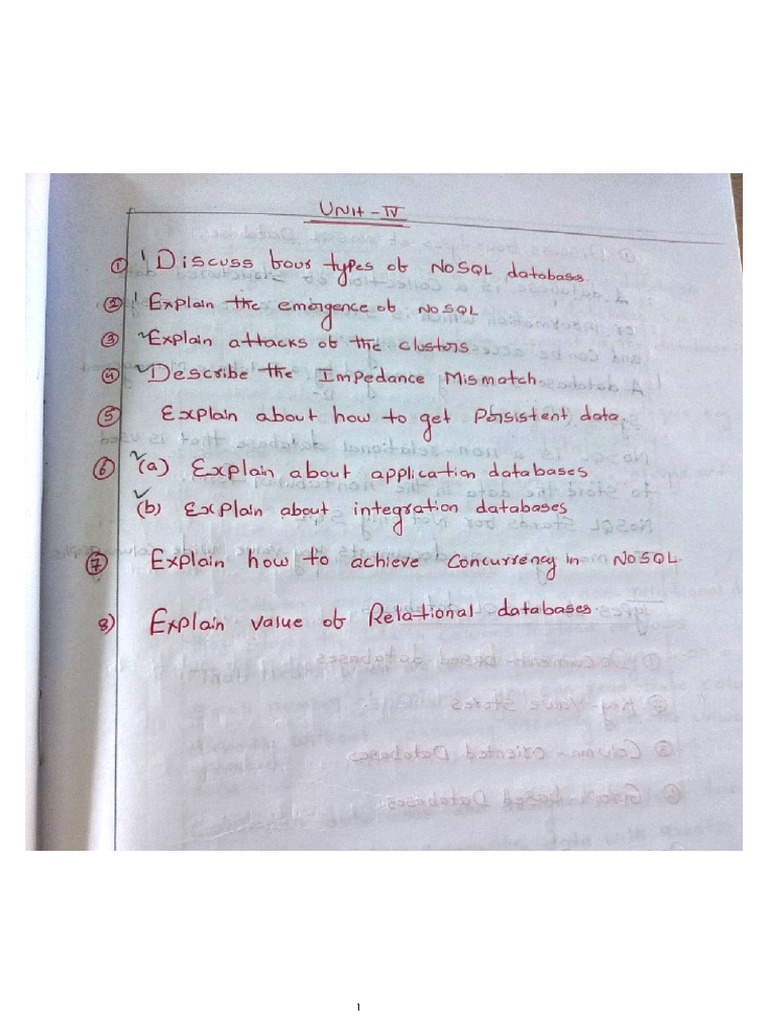 UNIt-IV
① Discuss four types of NoSQL databases.
② Explain the emergence of NoSQL
③ Explain attacks of the clusters
④ Describe the Impedance Mismatch
⑤ Explain about how to get Persistent data.
⑥ (a) Explain about application databases
(b) Explain about integration databases
⑦ Explain how to achieve Concurrency in NoSQL.
8) Explain value of Relational databases.
1